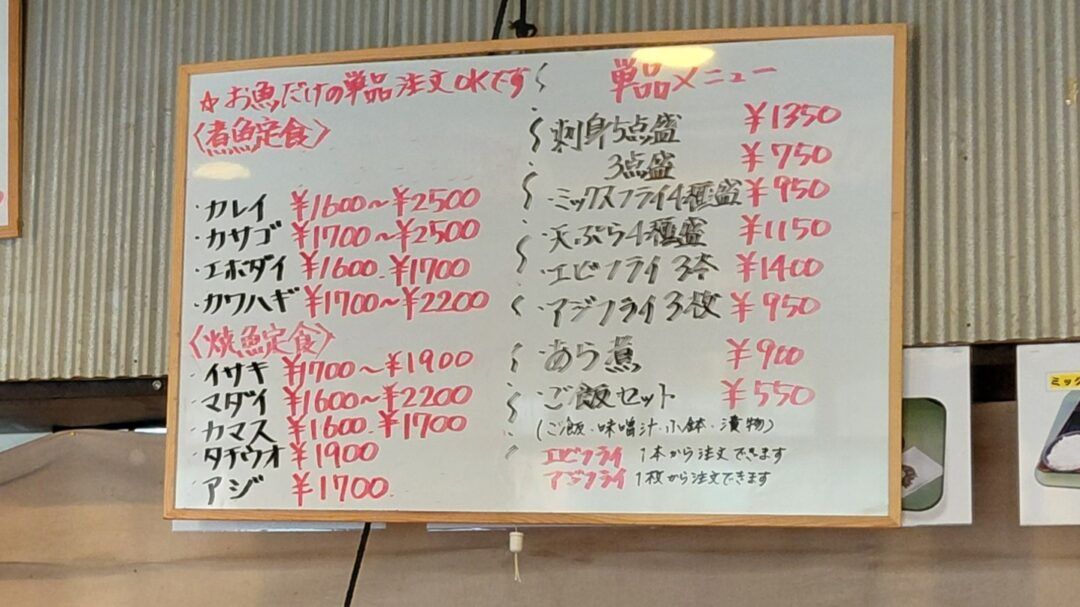 ☆お魚だけの単品注文OKです
〈煮魚定食〉
・カレイ ¥1600〜¥2500
・カサゴ ¥1700〜¥2500
・エボダイ ¥1600.¥1700
・カワハギ ¥1700〜¥2200
〈焼魚定食〉
・イサキ ¥1700〜¥1900
・マダイ ¥1600〜¥2200
・カマス ¥1600.¥1700
・タチウオ ¥1900
・アジ ¥1700.
単品メニュー
・刺身5点盛 ¥1350
3点盛 ¥750
・ミックスフライ4種盛 ¥950
・天ぷら4種盛 ¥1150
・エビフライ3本 ¥1400
・アジフライ3枚 ¥950
・あら煮 ¥900
・ご飯セット ¥550
(ご飯・味噌汁・小鉢・漬物)
エビフライ 1本から注文できます
アジフライ 1枚から注文できます
ミック